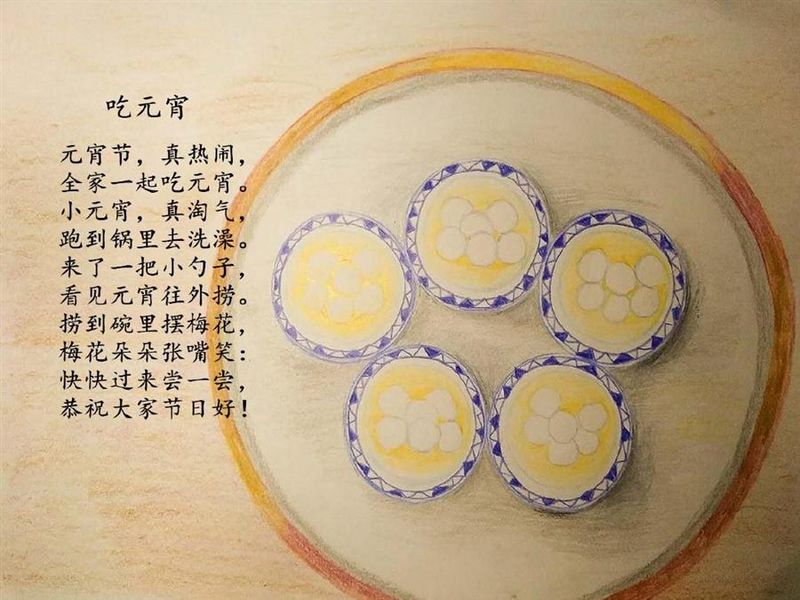 吃元宵
元宵节，真热闹，
全家一起吃元宵。
小元宵，真淘气，
跑到锅里去洗澡。
来了一把小勺子，
看见元宵往外捞。
捞到碗里摆梅花，
梅花朵朵张嘴笑：
快快过来尝一尝，
恭祝大家节日好！